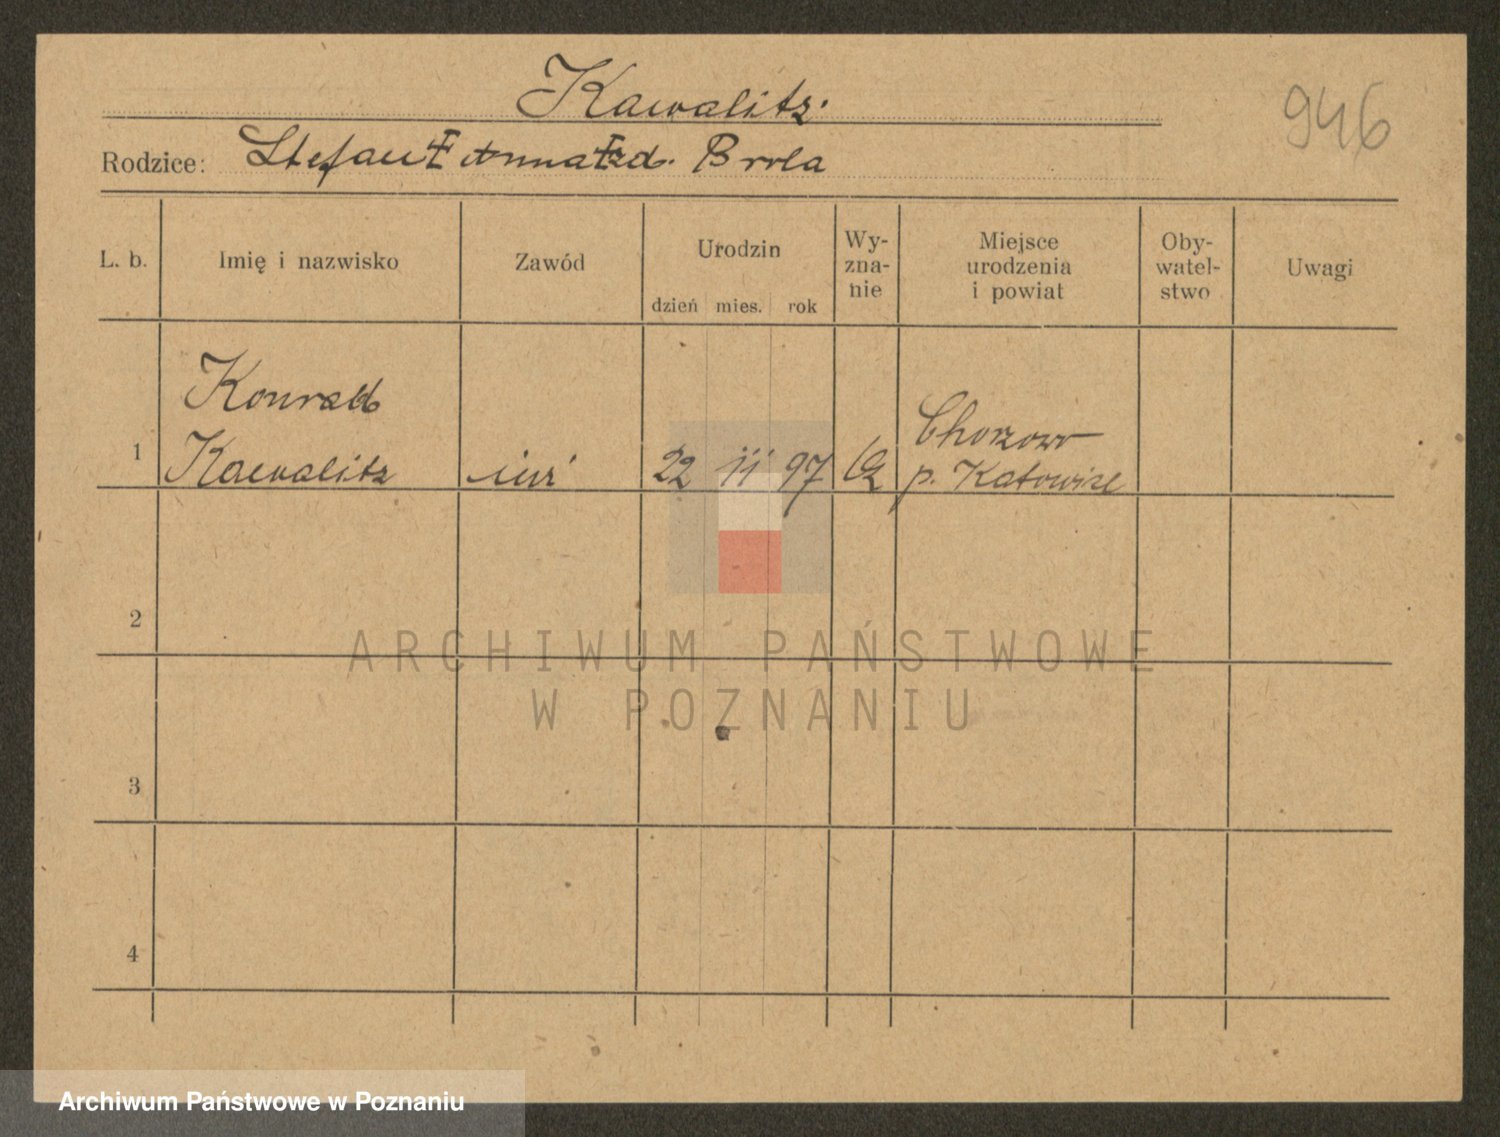 Kawalitz.
946
Rodzice: Stefan Ŧ Anna Ŧ zd. Brola
L. b.
Imię i nazwisko
Zawód
Urodzin
dzień mies. rok
Wy-
zna-
nie
Miejsce
urodzenia
i powiat
Oby-
watel-
stwo
Uwagi
1
Konrad
Kawalitz
inż
22 11 97
Chorzow
p. Katowice
2
ARCHIWUM PAŃSTWOWE
W POZNANIU
3
4
Archiwum Państwowe w Poznaniu